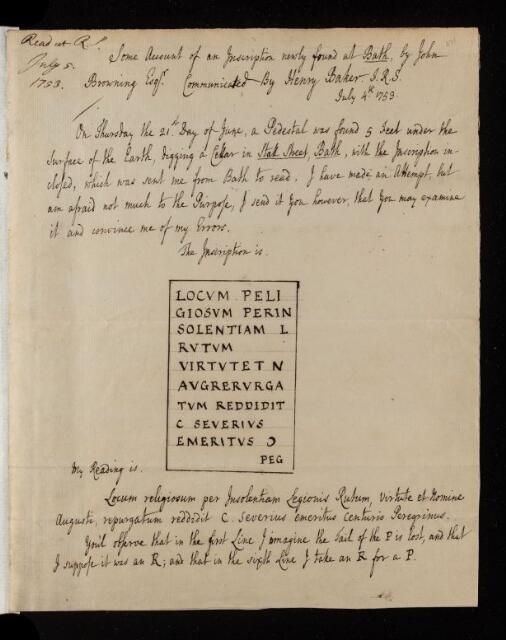 Read at R.S.
July 5.
1753.
Some Account of an Inscription newly found at Bath, by John
Browning Esqr. Communicated By Henry Baker F.R.S.
July 4th 1753.
On Thursday the 21st Day of June, a Pedestal was found 5 Feet under the
Surface of the Earth, digging a Cellar in Stall Street, Bath, with the Inscription in-
closed, which was sent me from Bath to read. I have made an Attempt, but
am afraid not much to the Purpose, I send it You however, that You may examine
it and convince me of my Errors.
The Inscription is.
LOCVM PELI
GIOSVM PERIN
SOLENTIAM L
RVTVM
VIRTVTET N
AVGRERVRGA
TVM REDDIDIT
C SEVERIVS
EMERITVS Ɔ
PEG
My Reading is.
Locum religiosum per Insolentiam Legionis Rutum, virtute et Nomine
Augusti, repurgatum reddidit C. Severius emeritus Centurio Peregrinus.
You'l observe that in the first Line I imagine the tail of the P is lost, and that
I suppose it was an R; and that in the sixth Line I take an R for a P.